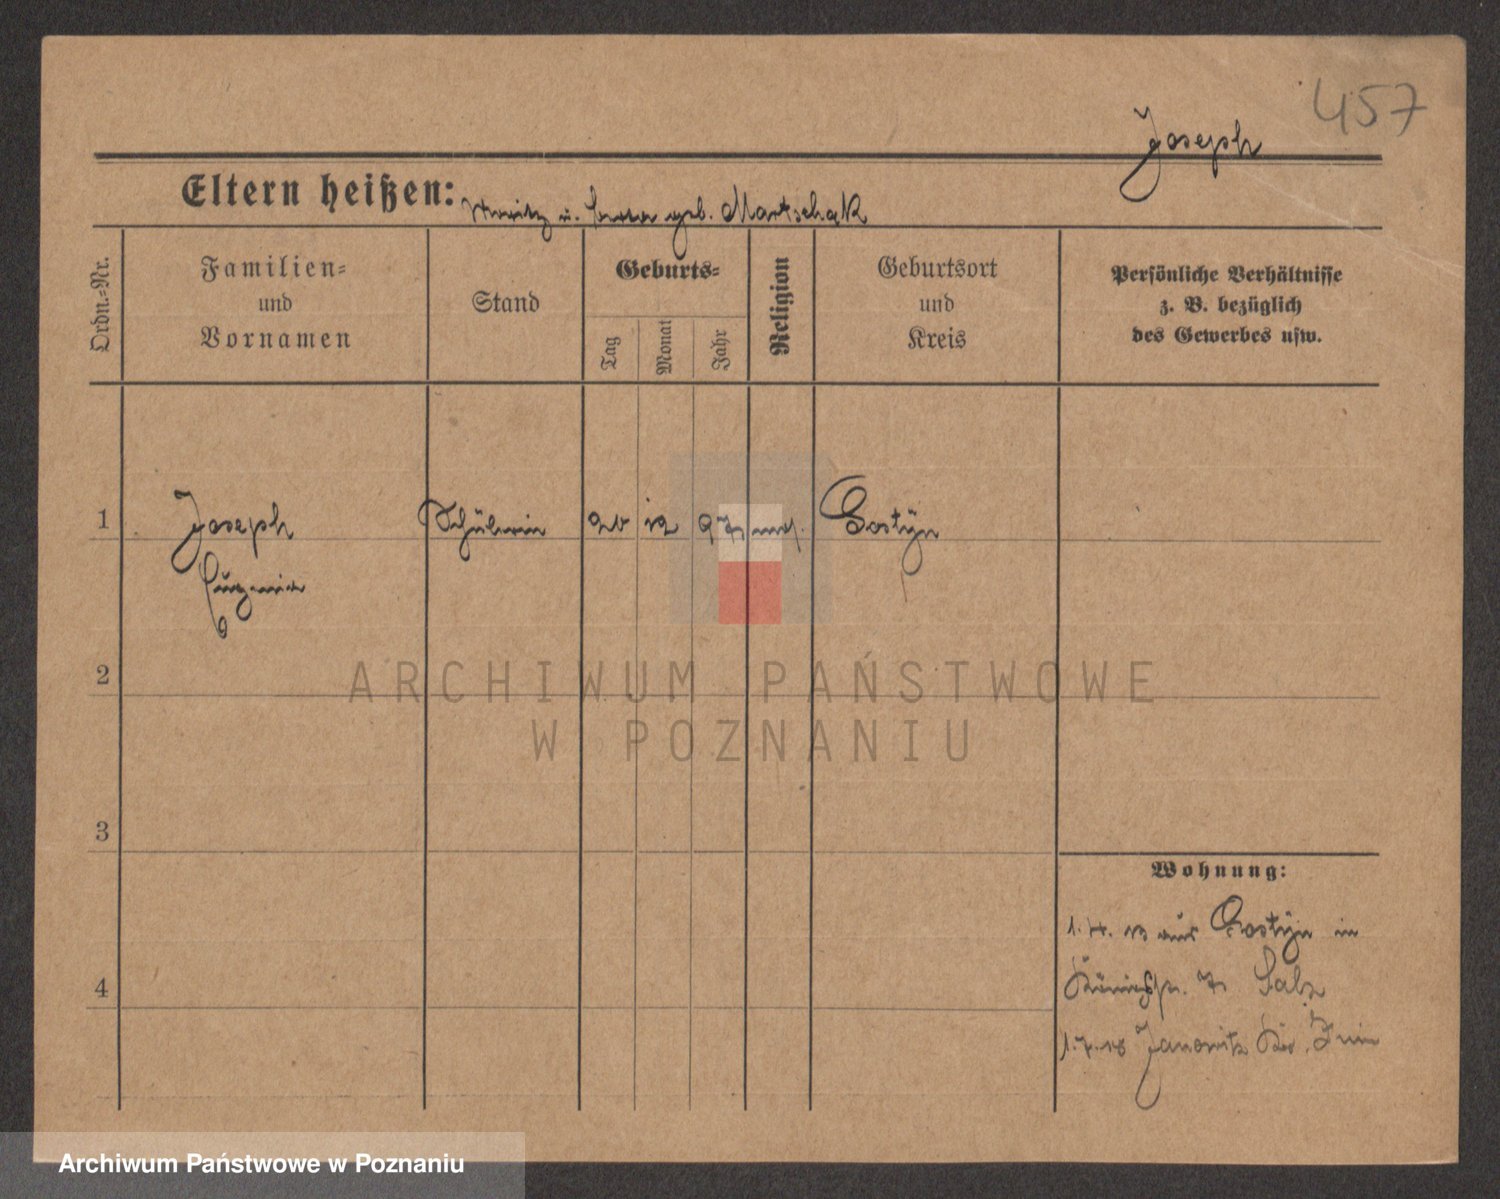 457
Joseph
Eltern heißen: Moritz u. geb. Martschak
Ordn.-Nr.
Familien-
und
Vornamen
Stand
Geburts-
Tag
Monat
Jahr
Religion
Geburtsort
und
Kreis
Persönliche Verhältnisse
z. B. bezüglich
des Gewerbes usw.
1 Joseph Schülerin 26 12 97 mos. Gostÿn
Eugenie
2
3
4
Wohnung:
1. 4. 13 aus Gostÿn in
Königspl. Salz
1.7.18 Janowitz Kr. Znin
ARCHIWUM PAŃSTWOWE
W POZNANIU
Archiwum Państwowe w Poznaniu